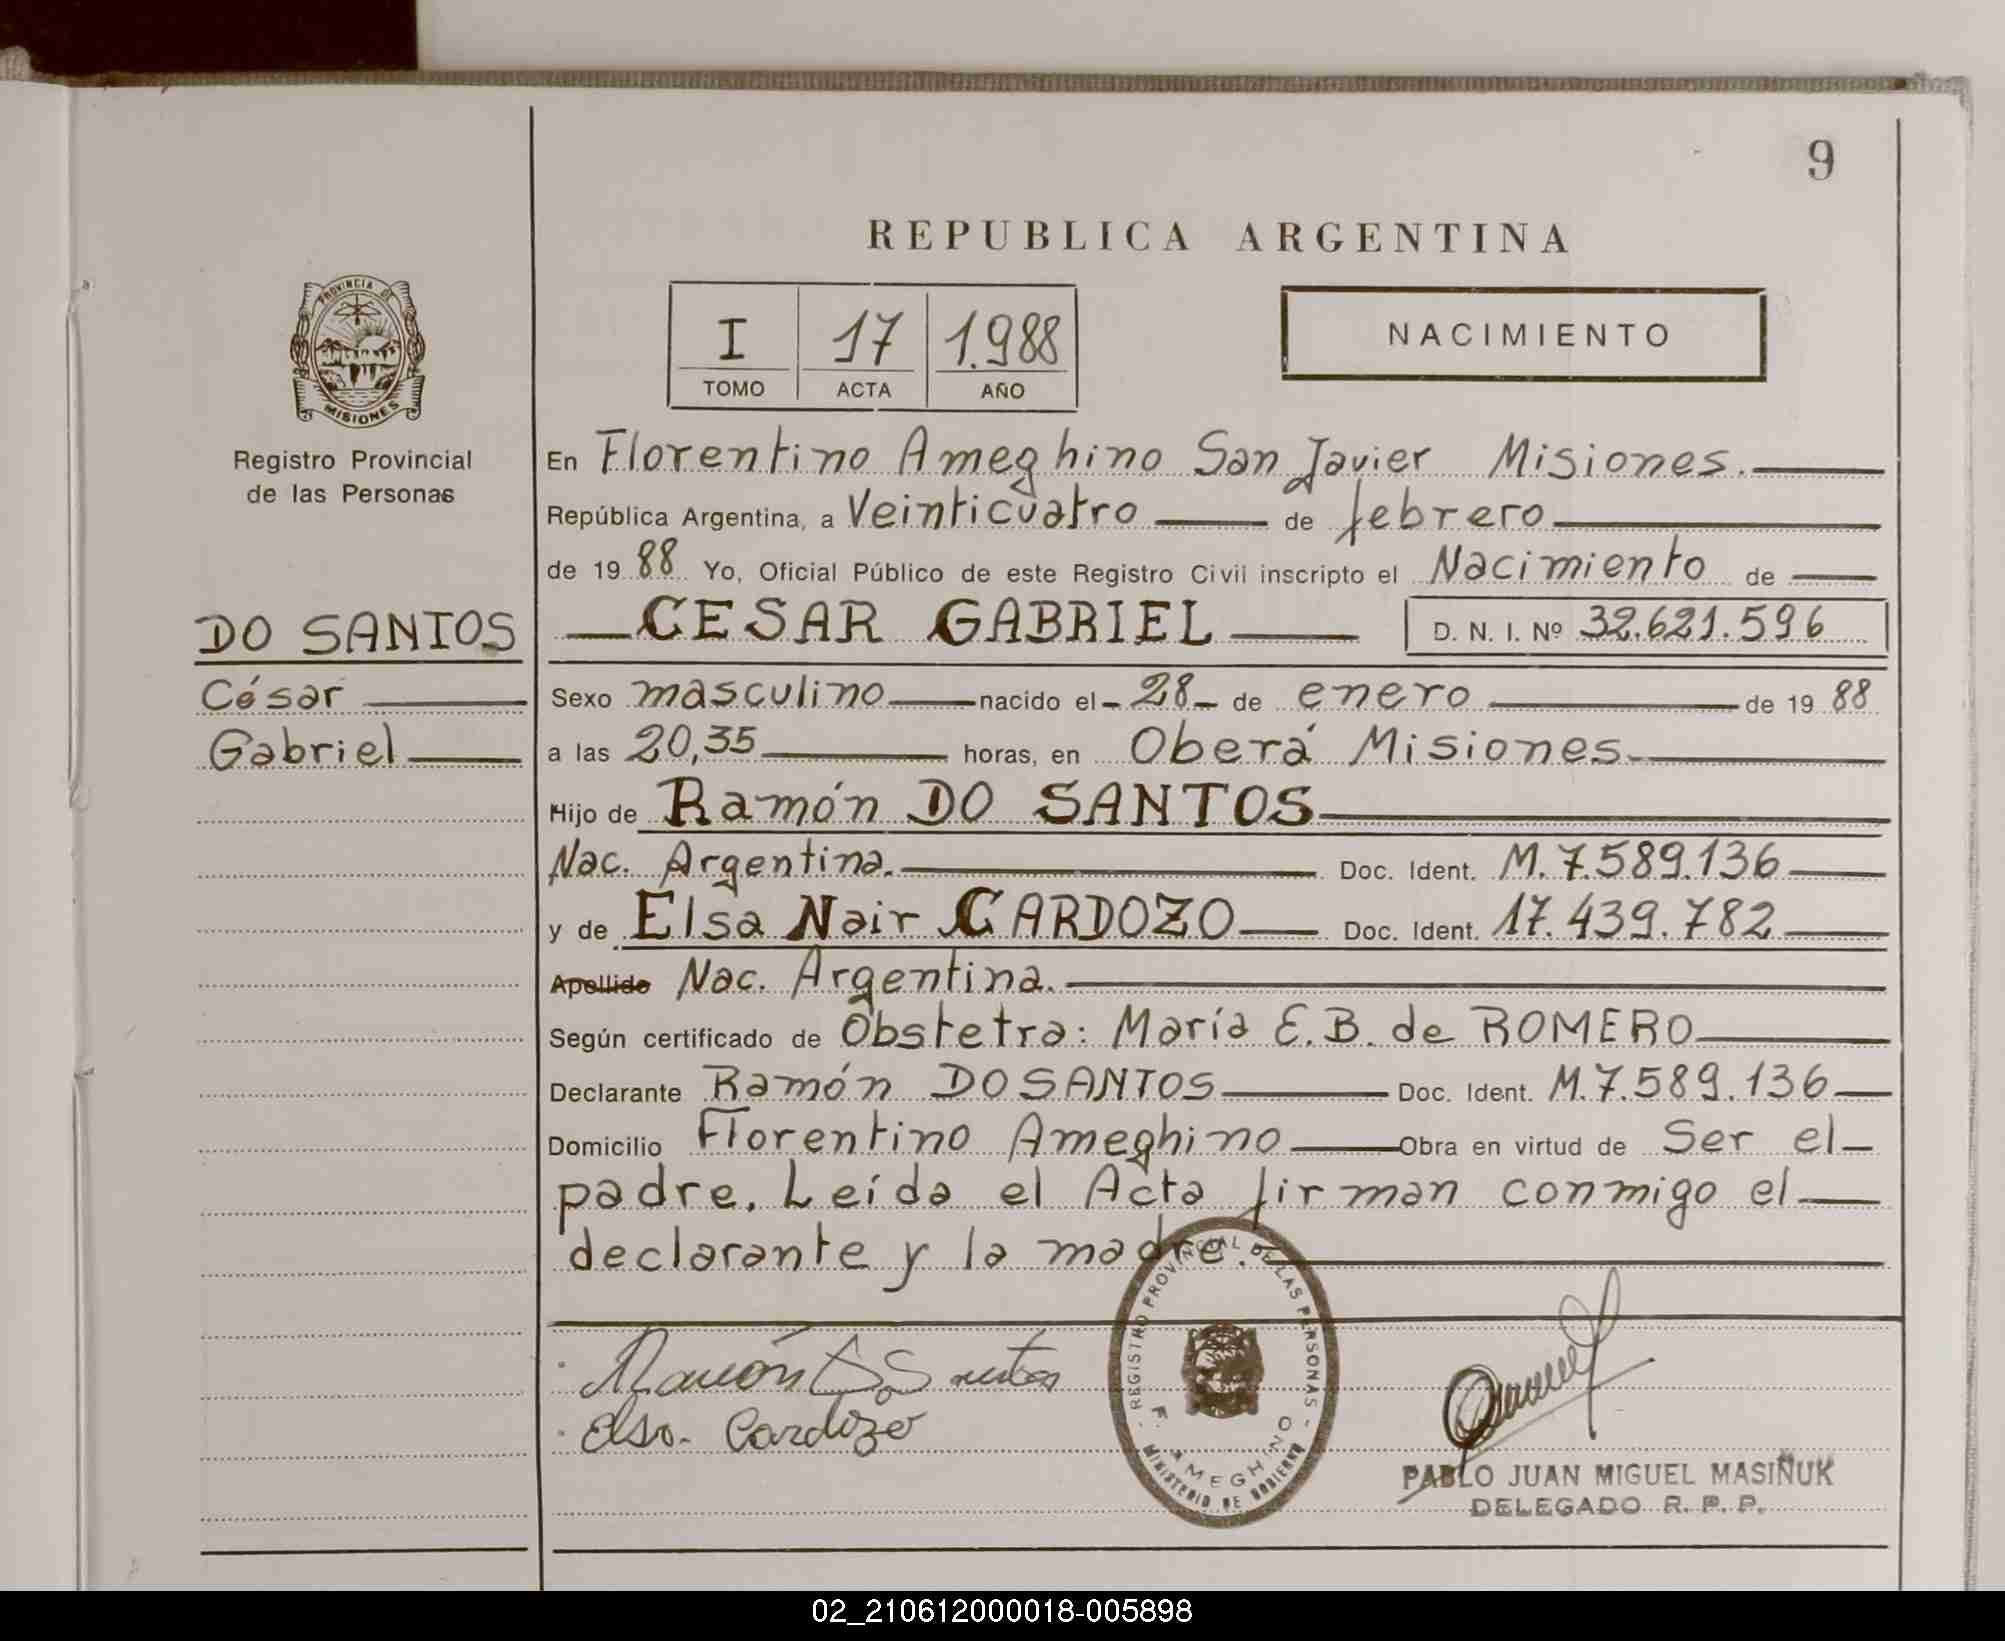 9
REPUBLICA ARGENTINA
I 17 1.988
TOMO ACTA AÑO
NACIMIENTO
PROVINCIA DE MISIONES
Registro Provincial
de las Personas
DO SANTOS
César
Gabriel
En Florentino Ameghino San Javier Misiones.
República Argentina, a Veinticuatro de febrero
de 19 88 Yo, Oficial Público de este Registro Civil inscripto el Nacimiento de
CESAR GABRIEL D. N. I. Nº 32.621.596
Sexo masculino nacido el - 28 - de enero de 19 88
a las 20,35 horas, en Oberá Misiones.
Hijo de Ramón DO SANTOS
Nac. Argentina. Doc. Ident. M. 7.589.136
y de Elsa Nair CARDOZO Doc. Ident. 17.439.782
Apellido Nac. Argentina.
Según certificado de Obstetra: María E.B. de ROMERO
Declarante Ramón DO SANTOS Doc. Ident. M.7.589.136
Domicilio Florentino Ameghino Obra en virtud de Ser el
padre. Leída el Acta firman conmigo el
declarante y la madre.
Ramón Do Santos
Elsa Cardozo
REGISTRO PROVINCIAL DE LAS PERSONAS
F. AMEGHINO
MINISTERIO DE GOBIERNO
PABLO JUAN MIGUEL MASIÑUK
DELEGADO R. P. P.
02_210612000018-005898